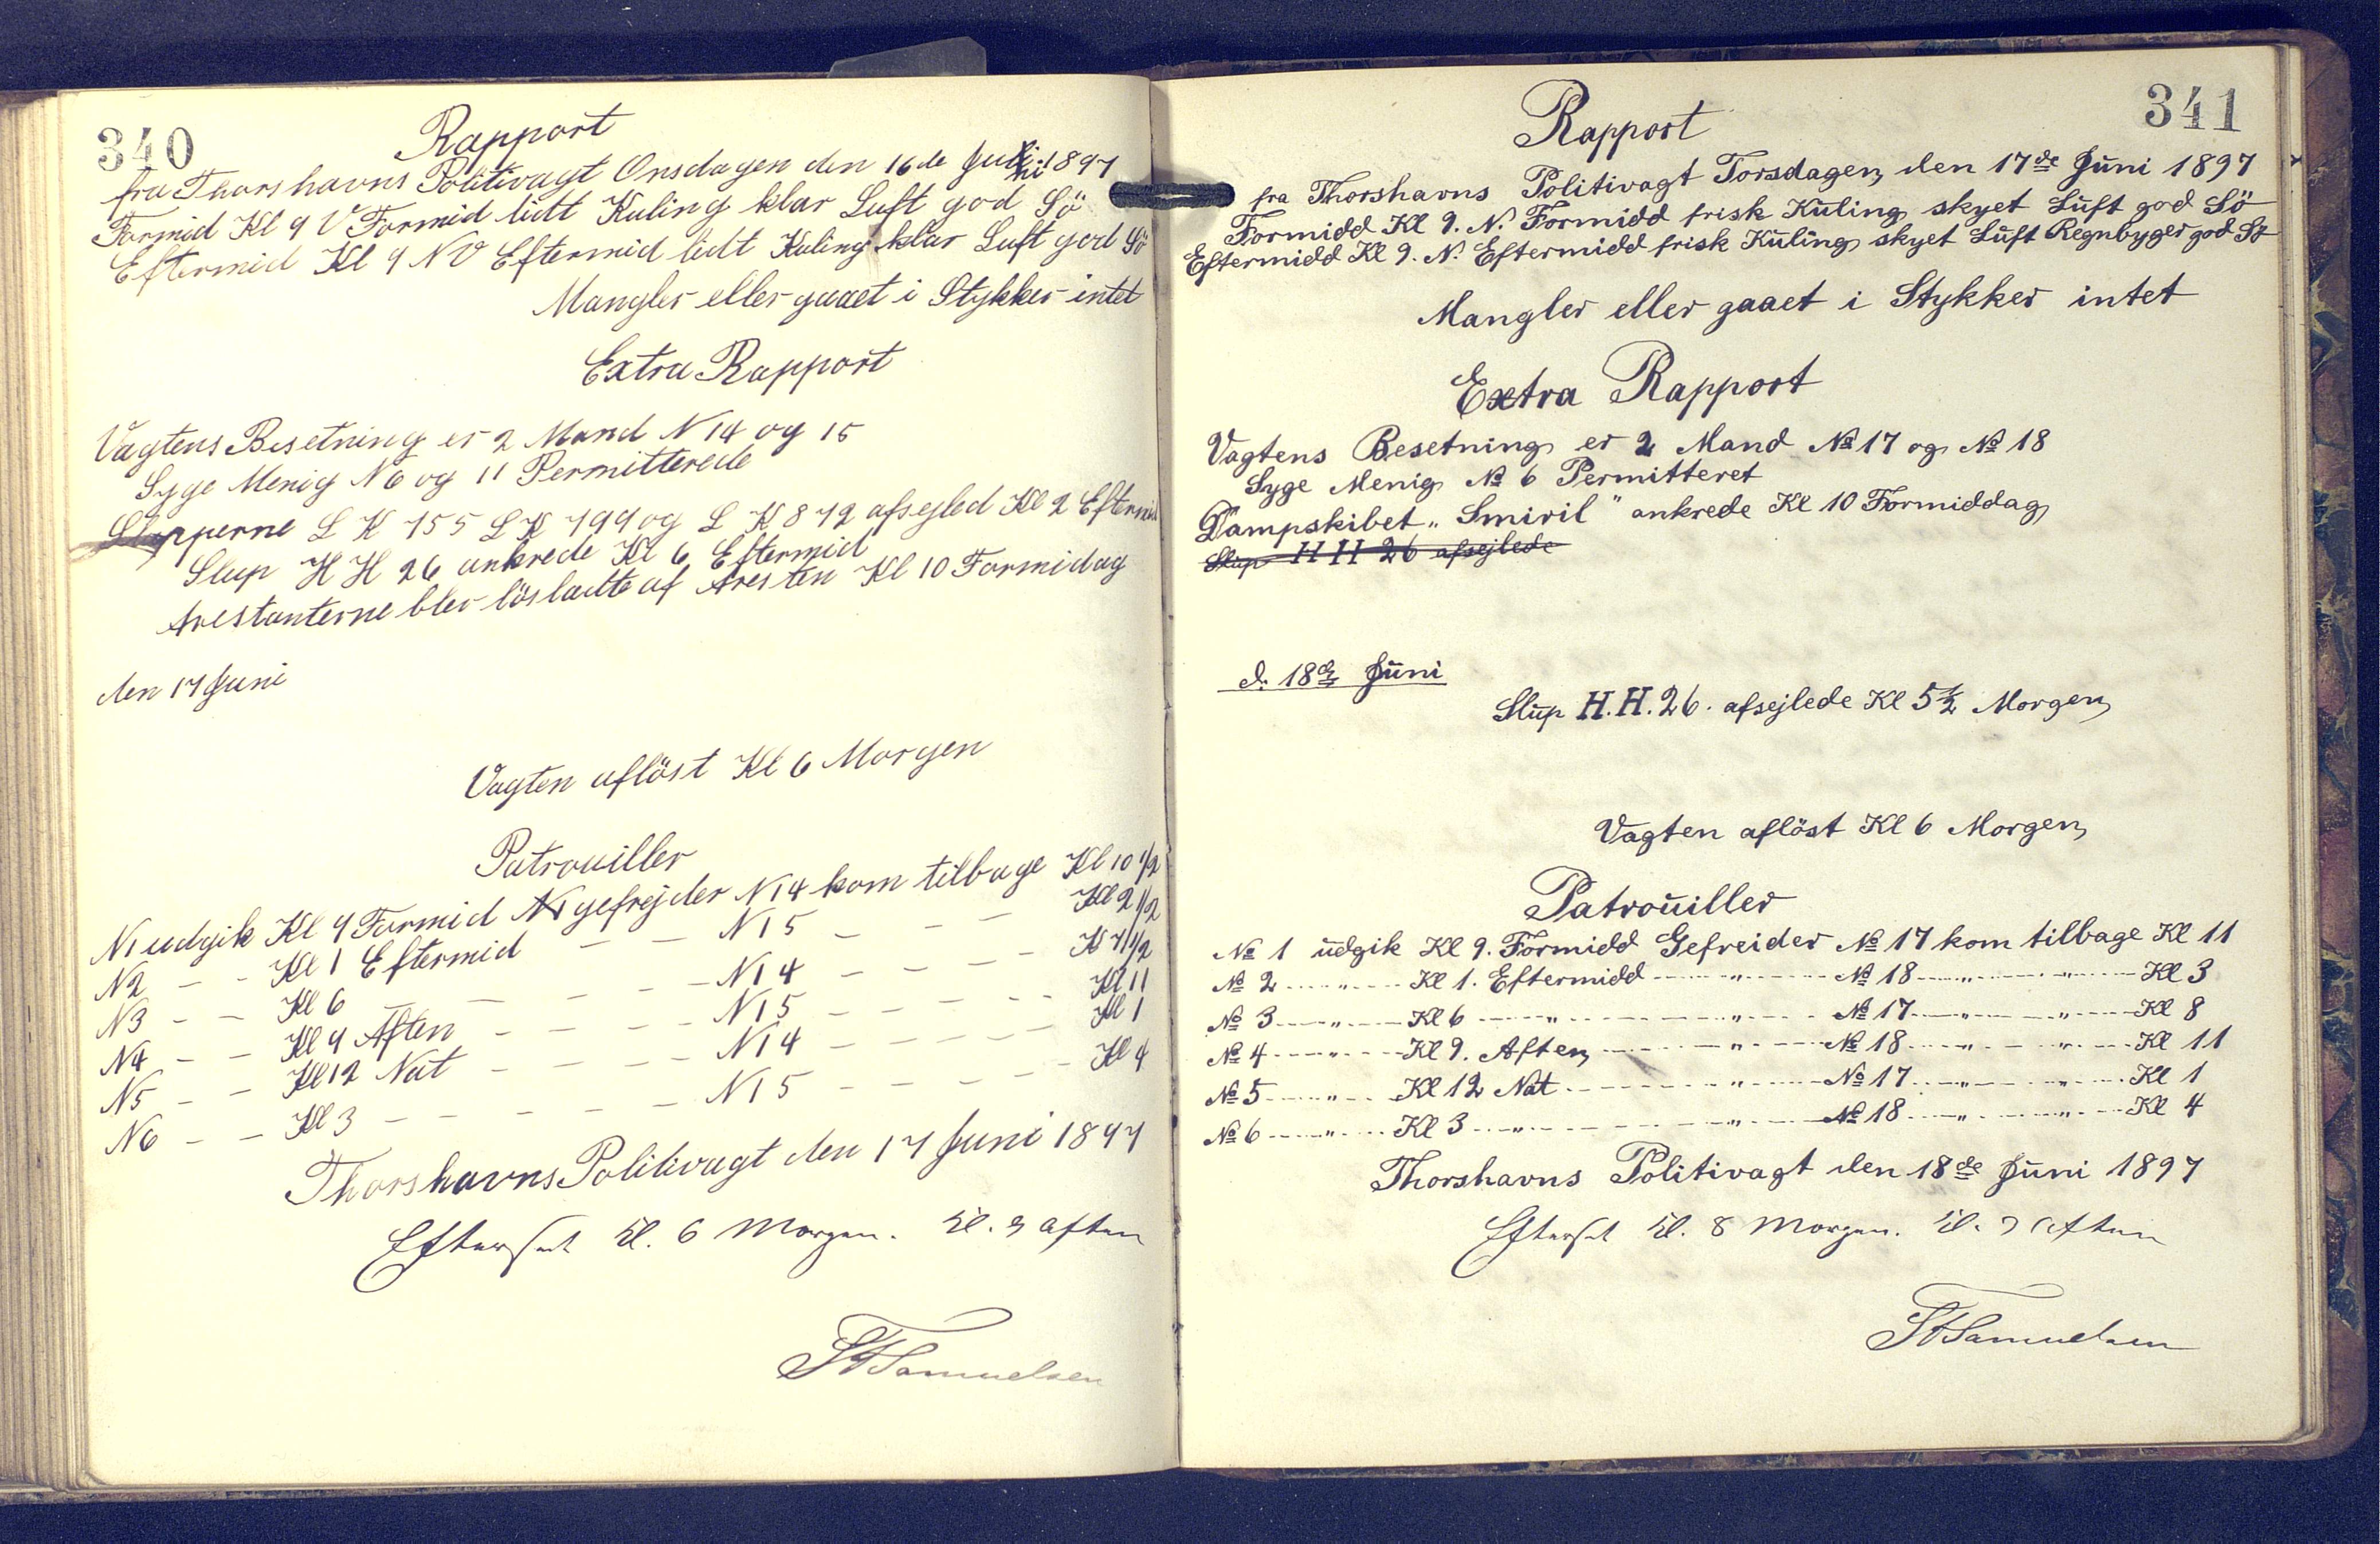 340
Rapport
fra Thorshavns Politivagt Onsdagen den 16de Juni 1897
Formid Kl 9 V Formid lidt Kuling klar Luft god Sö
Eftermid Kl 9 NV Eftermid lidt Kuling klar Luft god Sö
Mangler eller gaaet i Stykker intet
Extra Rapport
Vagtens Besetning er 2 Mand N 14 og 15
Syge Menig N 6 og 11 Permitterede
Slupperne L K 155 L K 799 og L K 872 afsejled Kl 2 Eftermid
Slup H H 26 ankrede Kl 6 Eftermid
Arestanterne blev lösladte af Aresten Kl 10 Formidag
den 17 Juni
Vagten aflöst Kl 6 Morgen
Patrouiller
N1 udgik Kl 9 Formid gefrejder N14 kom tilbage Kl 10 1/2
N2 – – Kl 1 Eftermid – – N15 – – – Kl 2 1/2
N3 – – Kl 6 – – – – N14 – – – – Kl 7 1/2
N4 – – Kl 9 Aften – – – – N15 – – – – Kl 11
N5 – – Kl 12 Nat – – – – N14 – – – – Kl 1
N6 – – Kl 3 – – – – – N15 – – – – – Kl 4
Thorshavns Politivagt den 17 Juni 1897
Efterset Kl. 6 Morgen. Kl. 9 Aften
Samuelsen
341
Rapport
fra Thorshavns Politivagt Torsdagen den 17de Juni 1897
Formidd Kl 9. N. Formidd frisk Kuling skyet Luft god Sö
Eftermidd Kl 9. N. Eftermidd frisk Kuling skyet Luft Regnbyger god Sö
Mangler eller gaaet i Stykker intet
Extra Rapport
Vagtens Besetning er 2 Mand № 17 og № 18
Syge Menig № 6 Permitteret
Dampskibet „Smiril" ankrede Kl 10 Formiddag
Slup H H 26 afsejlede
d. 18de Juni
Slup H.H. 26. afsejlede Kl 5 1/2 Morgen
Vagten aflöst Kl 6 Morgen
Patrouiller
№ 1 udgik Kl 9. Formidd Gefreider № 17 kom tilbage Kl 11
№ 2 — „ — Kl 1. Eftermidd — „ — № 18 — „ — „ — Kl 3
№ 3 — „ — Kl 6 — „ — „ — № 17 — „ — „ — Kl 8
№ 4 — „ — Kl 9. Aften — „ — № 18 — „ — „ — Kl 11
№ 5 — „ — Kl 12 Nat — „ — № 17 — „ — „ — Kl 1
№ 6 — „ — Kl 3 — „ — „ — № 18 — „ — „ — Kl 4
Thorshavns Politivagt den 18de Juni 1897
Efterset Kl. 8 Morgen. Kl. 9 Aften
Samuelsen